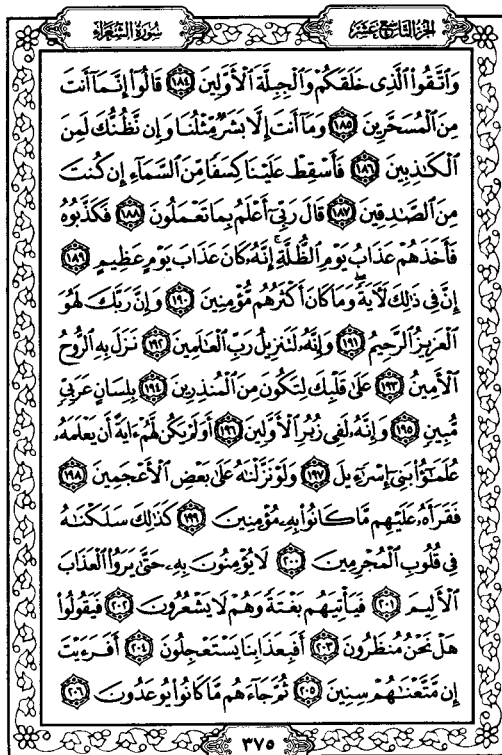 الجزء التاسع عشر
سورة الشعراء
وَاتَّقُوا الَّذِي خَلَقَكُمْ وَالْجِبِلَّةَ الْأَوَّلِينَ ١٨٤ قَالُوا إِنَّمَا أَنتَ
مِنَ الْمُسَحَّرِينَ ١٨٥ وَمَا أَنتَ إِلَّا بَشَرٌ مِّثْلُنَا وَإِن نَّظُنُّكَ لَمِنَ
الْكَاذِبِينَ ١٨٦ فَأَسْقِطْ عَلَيْنَا كِسَفًا مِّنَ السَّمَاءِ إِن كُنتَ
مِنَ الصَّادِقِينَ ١٨٧ قَالَ رَبِّي أَعْلَمُ بِمَا تَعْمَلُونَ ١٨٨ فَكَذَّبُوهُ
فَأَخَذَهُمْ عَذَابُ يَوْمِ الظُّلَّةِ ۚ إِنَّهُ كَانَ عَذَابَ يَوْمٍ عَظِيمٍ ١٨٩
إِنَّ فِي ذَٰلِكَ لَآيَةً ۖ وَمَا كَانَ أَكْثَرُهُم مُّؤْمِنِينَ ١٩٠ وَإِنَّ رَبَّكَ لَهُوَ
الْعَزِيزُ الرَّحِيمُ ١٩١ وَإِنَّهُ لَتَنزِيلُ رَبِّ الْعَالَمِينَ ١٩٢ نَزَلَ بِهِ الرُّوحُ
الْأَمِينُ ١٩٣ عَلَىٰ قَلْبِكَ لِتَكُونَ مِنَ الْمُنذِرِينَ ١٩٤ بِلِسَانٍ عَرَبِيٍّ
مُّبِينٍ ١٩٥ وَإِنَّهُ لَفِي زُبُرِ الْأَوَّلِينَ ١٩٦ أَوَلَمْ يَكُن لَّهُمْ ءَايَةً أَن يَعْلَمَهُ
عُلَمَٰٓؤُا بَنِي إِسْرَٰٓءِيلَ ١٩٧ وَلَوْ نَزَّلْنَٰهُ عَلَىٰ بَعْضِ الْأَعْجَمِينَ ١٩٨
فَقَرَأَهُ عَلَيْهِم مَّا كَانُوا بِهِ مُؤْمِنِينَ ١٩٩ كَذَٰلِكَ سَلَكْنَٰهُ
فِي قُلُوبِ الْمُجْرِمِينَ ٢٠٠ لَا يُؤْمِنُونَ بِهِ حَتَّىٰ يَرَوُا الْعَذَابَ
الْأَلِيمَ ٢٠١ فَيَأْتِيَهُم بَغْتَةً وَهُمْ لَا يَشْعُرُونَ ٢٠٢ فَيَقُولُوا
هَلْ نَحْنُ مُنظَرُونَ ٢٠٣ أَفَبِعَذَابِنَا يَسْتَعْجِلُونَ ٢٠٤ أَفَرَءَيْتَ
إِن مَّتَّعْنَٰهُمْ سِنِينَ ٢٠٥ ثُمَّ جَاءَهُم مَّا كَانُوا يُوعَدُونَ ٢٠٦
٣٧٥